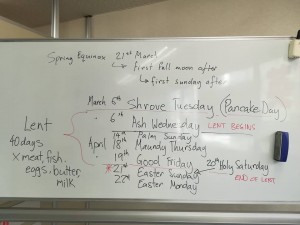 Spring Equinox 21st March
first full moon after
first sunday after
March 5th Shrove Tuesday (Pancake Day)
" 6th Ash Wednesday LENT BEGINS
14th Palm Sunday
April 18th Maundy Thursday
19th Good Friday
20th Holy Saturday
END OF LENT
* 21st Easter Sunday
22nd Easter Monday
Lent
40 days
x meat, fish,
eggs, butter,
milk